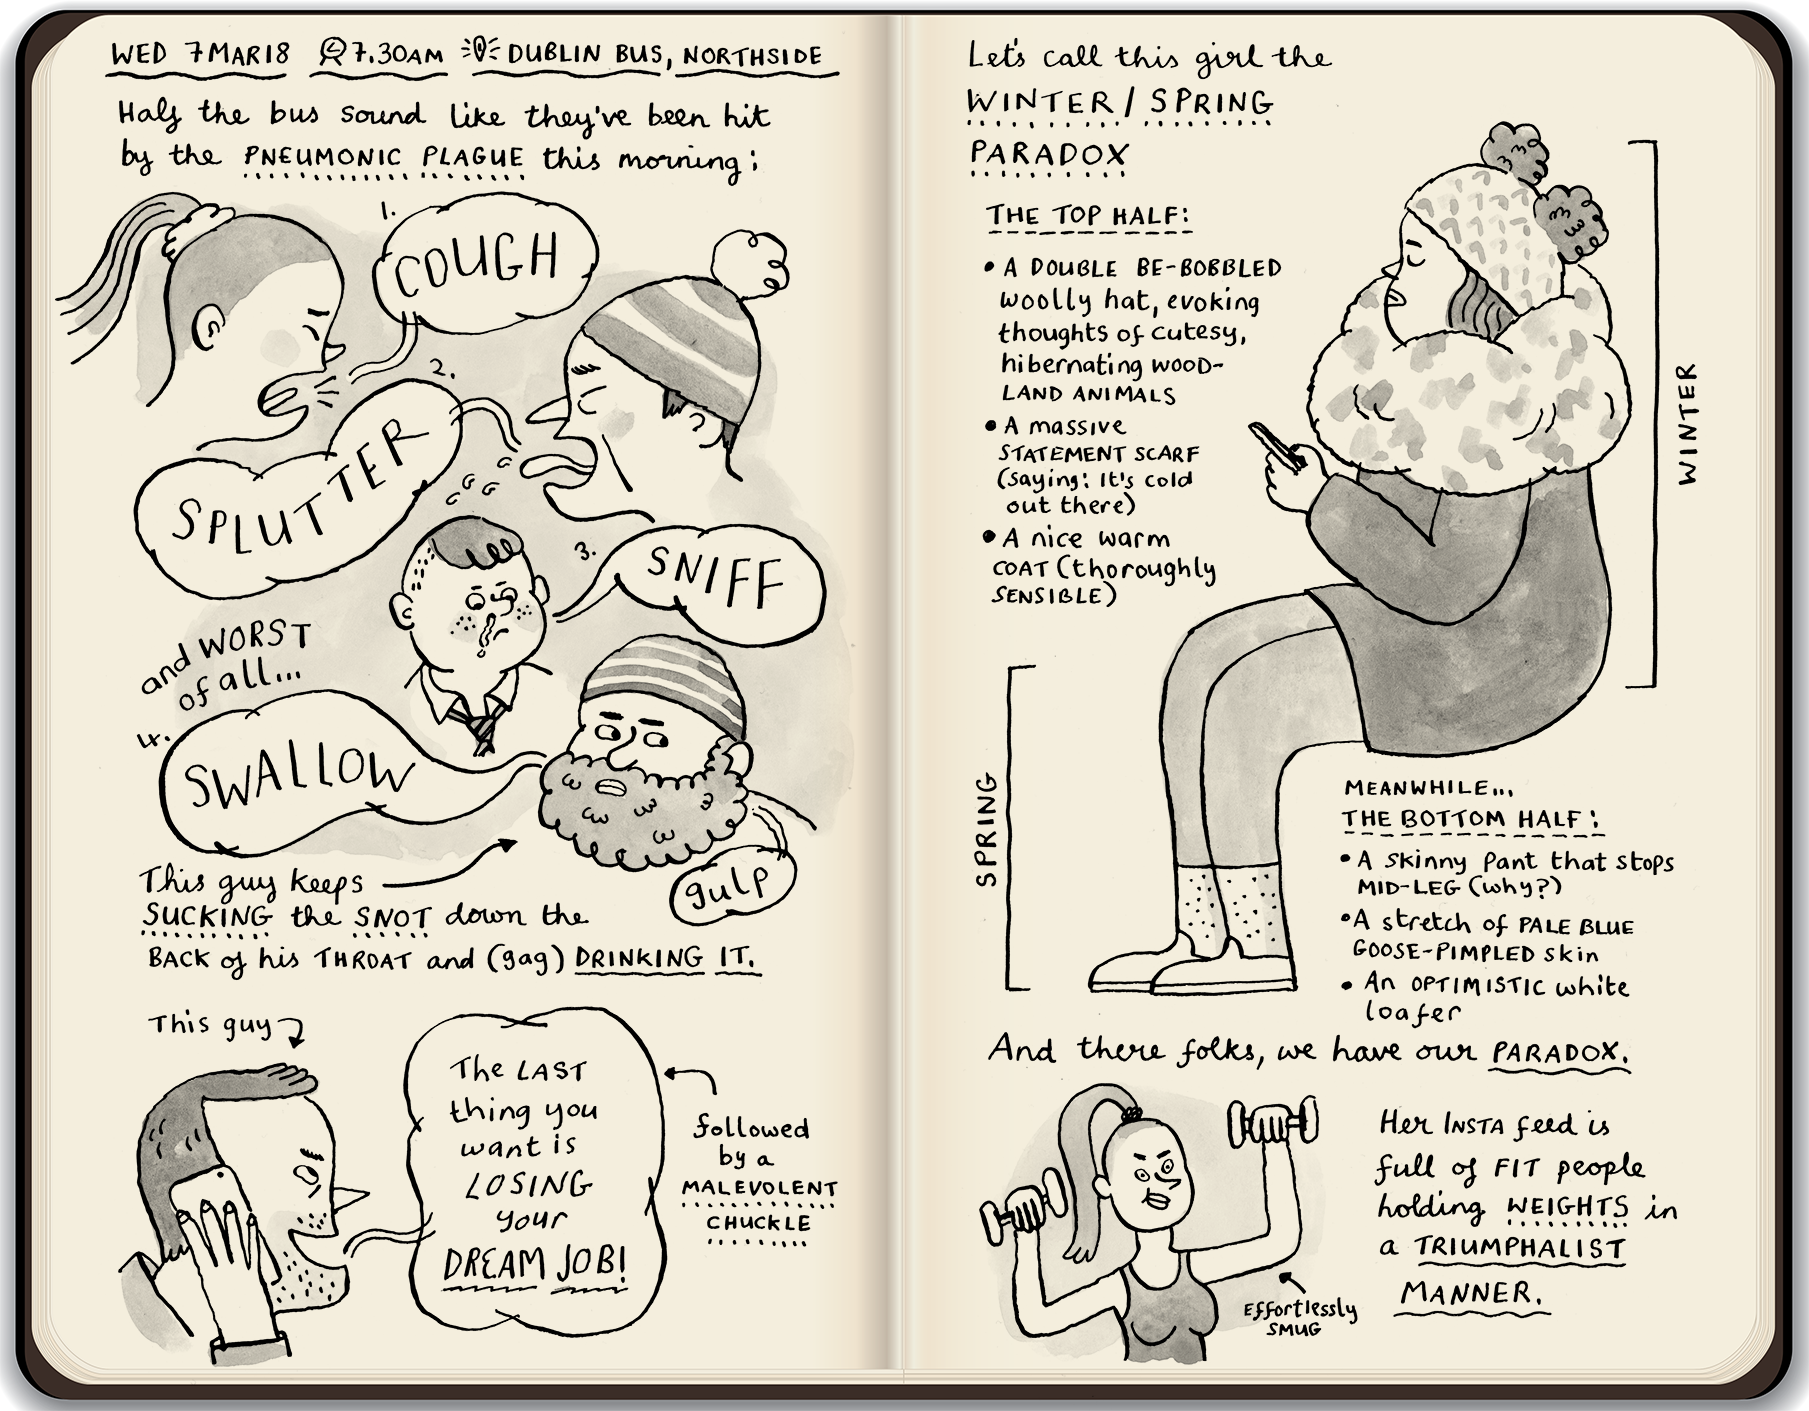 WED 7MAR18 7.30AM DUBLIN BUS, NORTHSIDE
Half the bus sound like they've been hit
by the PNEUMONIC PLAGUE this morning:
1.
COUGH
2.
SPLUTTER
3.
SNIFF
and WORST
of all...
4.
SWALLOW
gulp
This guy keeps
SUCKING the SNOT down the
BACK of his THROAT and (gag) DRINKING IT.
This guy
The LAST
thing you
want is
LOSING
your
DREAM JOB!
followed
by a
MALEVOLENT
CHUCKLE
Let's call this girl the
WINTER / SPRING
PARADOX
THE TOP HALF:
• A DOUBLE BE-BOBBLED
woolly hat, evoking
thoughts of cutesy,
hibernating WOOD-
LAND ANIMALS
• A massive
STATEMENT SCARF
(saying: It's cold
out there)
• A nice warm
COAT (thoroughly
SENSIBLE)
WINTER
SPRING
MEANWHILE...
THE BOTTOM HALF:
• A skinny pant that stops
MID-LEG (why?)
• A stretch of PALE BLUE
GOOSE-PIMPLED skin
• An OPTIMISTIC white
loafer
And there folks, we have our PARADOX.
Her INSTA feed is
full of FIT people
holding WEIGHTS in
a TRIUMPHALIST
MANNER.
Effortlessly
SMUG